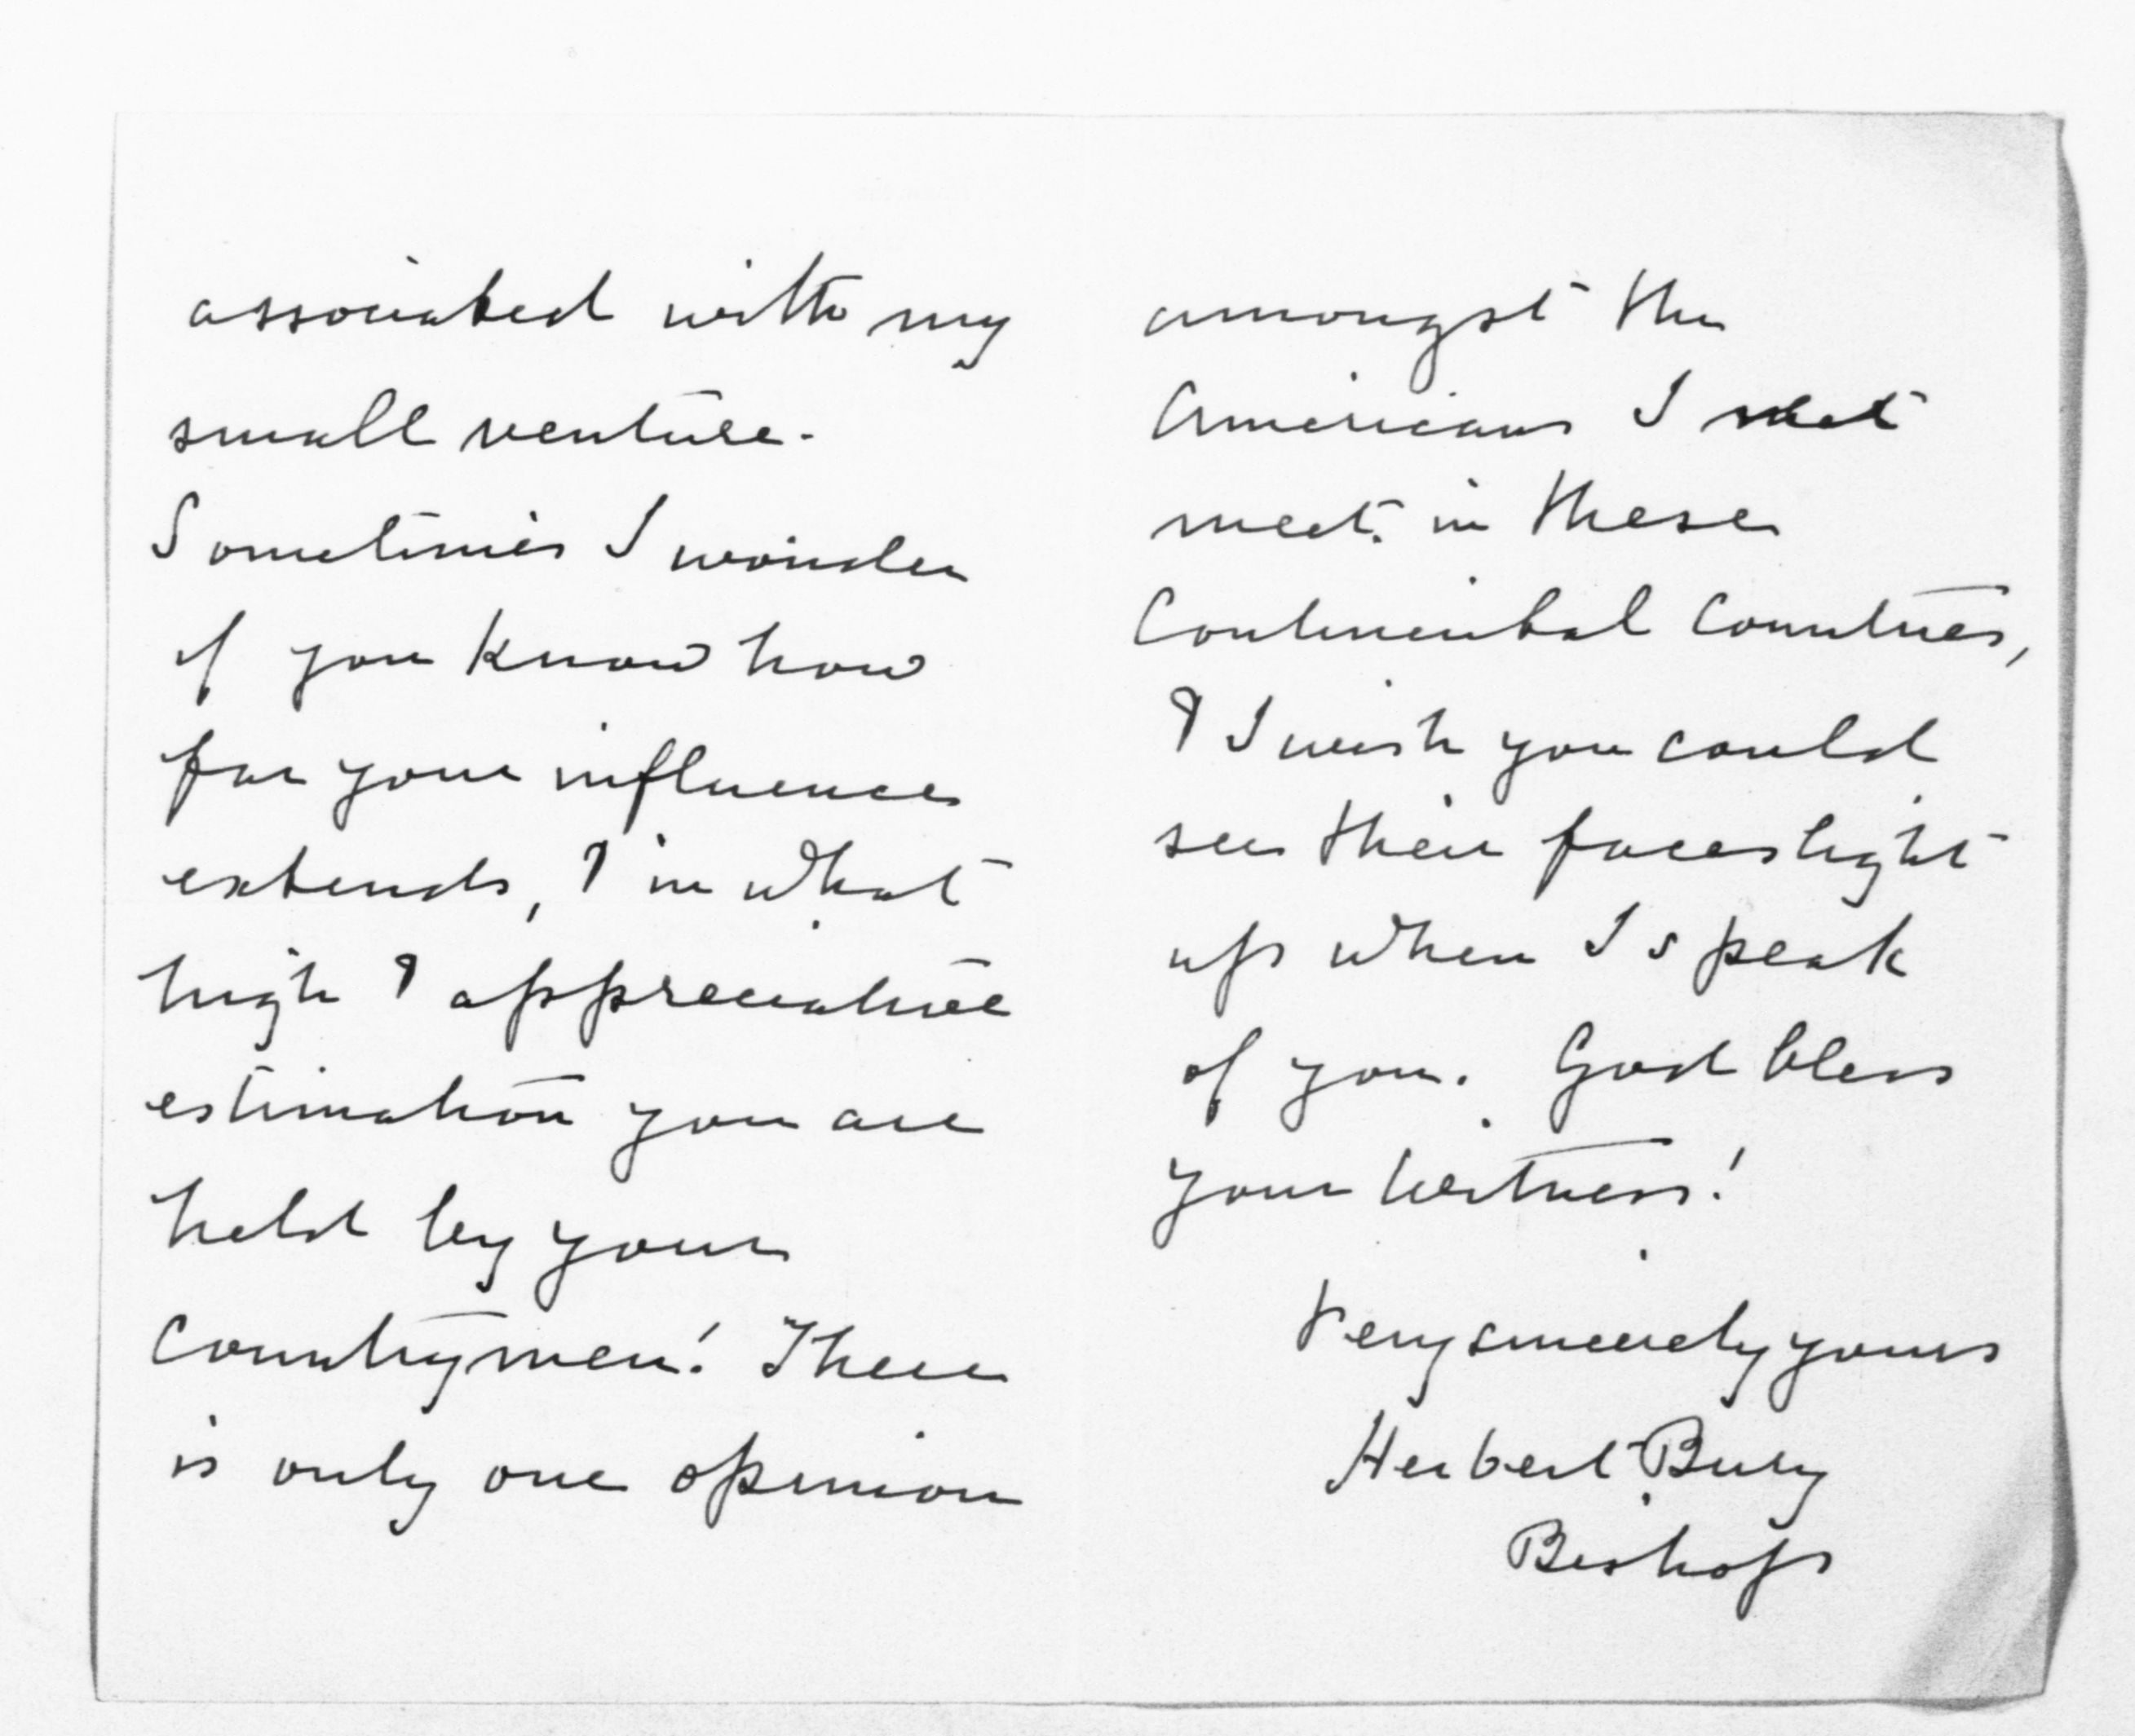 associated with my
small venture.
Sometimes I wonder
if you know how
far your influence
extends, & in what
high & appreciative
estimation you are
held by your
Countrymen! There
is only one opinion
amongst the
Americans I met
meet in these
Continental Countries,
& I wish you could
see their faces light
up when I speak
of you. God bless
your Witness!
Very sincerely yours
Herbert Bury
Bishop